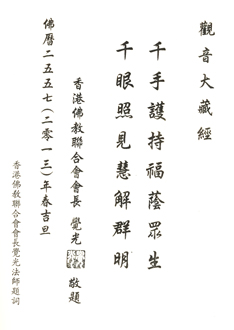 觀音大藏經
千手護持福蔭眾生
千眼照見慧解群明
香港佛教聯合會會長 覺光 敬題
佛曆二五五七(二零一三)年春吉旦
香港佛教聯合會會長覺光法師題詞